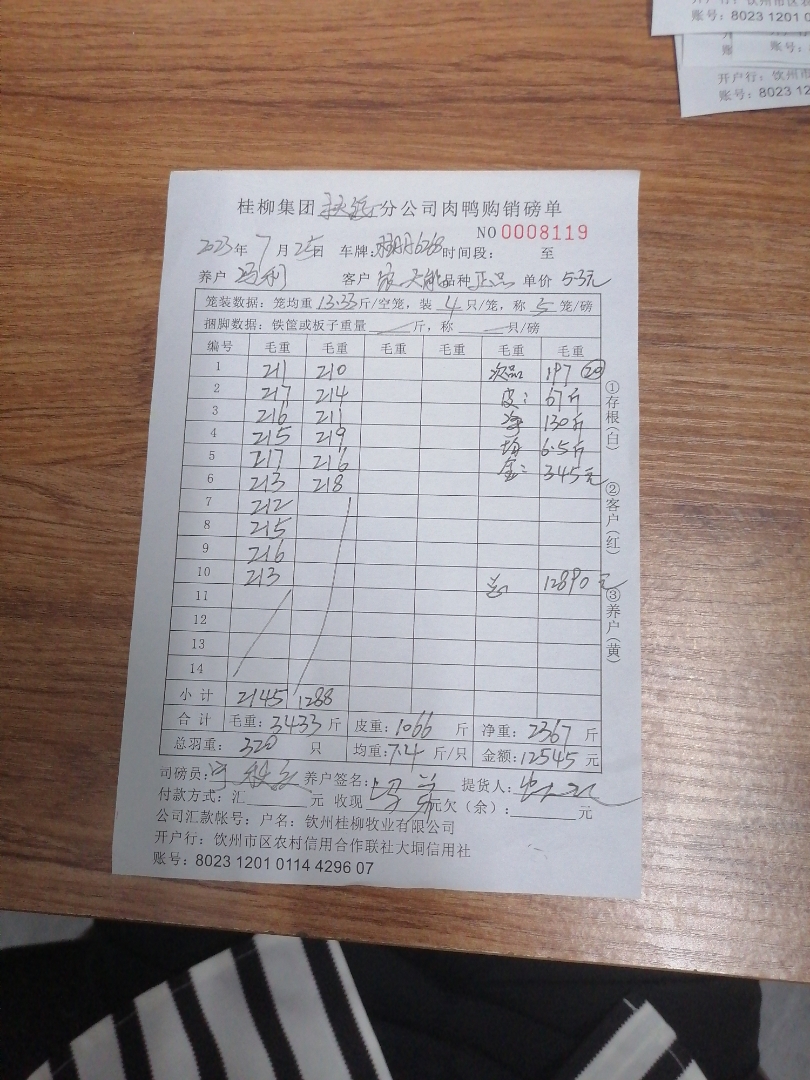 账号: 8023 1201 0
账
账号:
开户行: 钦州市区
账号: 8023 12
桂柳集团 分公司肉鸭购销磅单
NO 0008119
2023年 7月25日 车牌: 6268 时间段: 至
养户 冯利 客户 品种 正品 单价 5.3元
笼装数据: 笼均重 13.33 斤/空笼, 装 4 只/笼, 称 5 笼/磅
捆脚数据: 铁筐或板子重量 斤, 称 只/磅
编号 毛重 毛重 毛重 毛重 毛重 毛重
1 211 210 次品 197 20
2 217 214 皮: 67斤
3 216 211 净 130斤
4 215 219 均 6.5斤
5 217 216 金: 345元
6 213 218
7 212
8 215
9 216
10 213 总 12890元
11
12
13
14
小计 2145 1288
合计 毛重: 3433 斤 皮重: 1066 斤 净重: 2367 斤
总羽重: 320 只 均重: 7.4 斤/只 金额: 12545 元
司磅员: 养户签名: 提货人:
付款方式: 汇 元 收现 元欠(余): 元
公司汇款帐号: 户名: 钦州桂柳牧业有限公司
开户行: 钦州市区农村信用合作联社大垌信用社
账号: 8023 1201 0114 4296 07
①存根(白)
②客户(红)
③养户(黄)